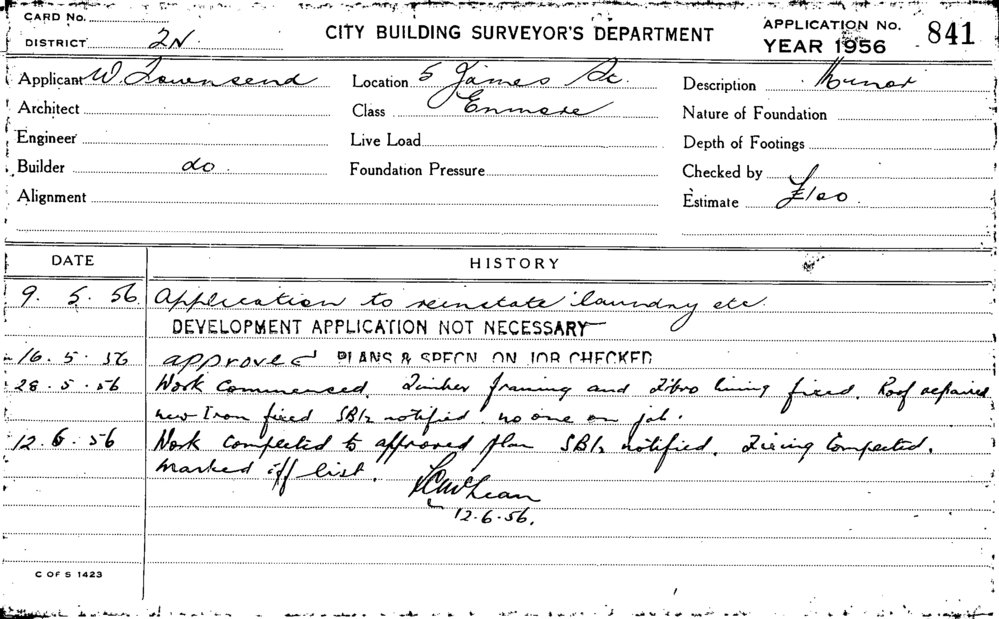 CARD No.
DISTRICT 2N
CITY BUILDING SURVEYOR'S DEPARTMENT
APPLICATION No. 841
YEAR 1956
Applicant W. Townsend
Location 5 James St.
Description Minor
Architect
Class Enmore
Nature of Foundation
Engineer
Live Load
Depth of Footings
Builder do.
Foundation Pressure
Checked by
Alignment
Estimate £100.
DATE HISTORY
9. 5. 56. Application to reinstate laundry etc.
DEVELOPMENT APPLICATION NOT NECESSARY
16. 5. 56 approved PLANS & SPECN. ON JOB CHECKED
28. 5. 56 Work Commenced. Timber framing and Fibro lining fixed. Roof repaired
new Iron fixed SB/2 notified. no one on job.
12. 6. 56 Work Completed to approved plan SB/2 notified. Fixing Completed.
Marked off list.
McLean
12.6.56.
C OF S 1423